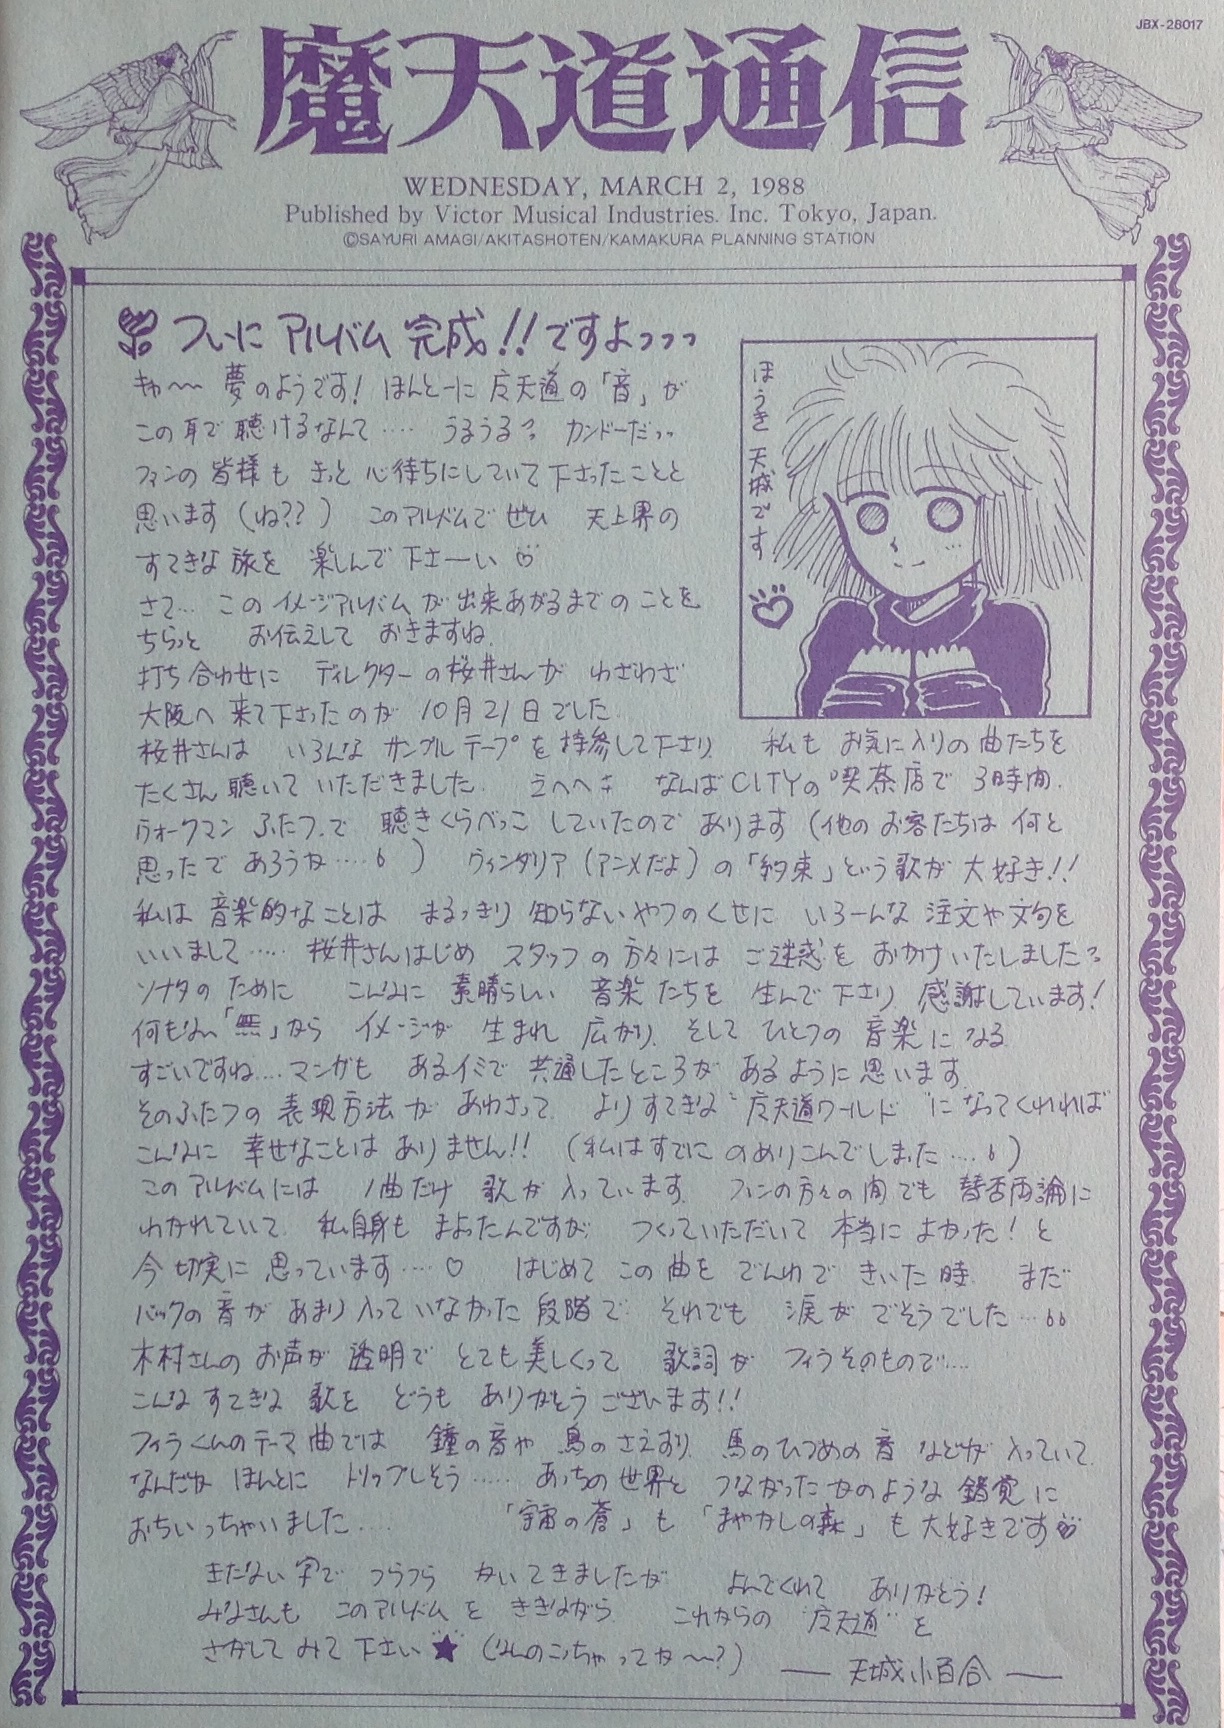 JBX-28017
魔天道通信
WEDNESDAY, MARCH 2, 1988
Published by Victor Musical Industries. Inc. Tokyo, Japan.
©SAYURI AMAGI/AKITASHOTEN/KAMAKURA PLANNING STATION
ついに アルバム 完成!!ですよっっっ
キャ〜〜 夢のようです! ほんとーに 魔天道の「音」が
この耳で 聴けるなんて…… うるうる カンドーだっっ
ファンの 皆様も きっと 心待ちにしていて下さったことと
思います(ね??) このアルバムで ぜひ 天上界の
すてきな 旅を 楽しんで 下さーい♡
さて… この イメージアルバム が 出来あがるまでの ことを
ちらっと お伝えして おきますね.
打ち合わせに ディレクターの桜井さんが わざわざ
大阪へ 来て下さったのが 10月21日でした.
ほうき 天城です
桜井さんは いろんな サンプルテープを 持参して下さり、 私も お気に入りの 曲たちを
たくさん 聴いて いただきました. えへへ なんばCITYの 喫茶店で 3時間.
ウォークマン ふたつ.で 聴きくらべっこ していたので あります(他の お客たちは 何と
思ったで あろうか……) ウィンダリア(アニメだよ)の「約束」という歌が 大好き!!
私は 音楽的なことは まるっきり 知らないやつのくせに いろーんな 注文や文句を
いいまして…… 桜井さんはじめ スタッフの 方々には ご迷惑を おかけいたしました
ソナタの ために こんなに 素晴らしい 音楽 たちを 生んで 下さり、感謝しています!
何もない「無」から イメージが 生まれ 広がり、そして ひとつの 音楽に なる.
すごいですね…. マンガも あるイミで 共通したところが あるように 思います.
そのふたつの 表現方法が あわさって、 よりすてきな “魔天道ワールド”になってくれれば
こんなに 幸せなことは ありません!! (私はすでに のめりこんでしまった….)
このアルバムには 1曲だけ 歌が 入っています. ファンの方々の 間でも 賛否両論に
わかれていて 私自身も まよったんですが、 つくっていただいて 本当に よかった!と
今 切実に 思っています….♡ はじめて この曲を でんわで きいた時、 まだ
バックの 音が あまり 入って いなかった 段階で、 それでも 涙が でそうでした…
木村さんの お声が 透明で とても 美しくって 歌詞が フィラそのもので….
こんな すてきな 歌を どうも ありがとう ございます!!
フィラくんのテーマ曲では 鐘の音や 鳥の さえずり、馬のひづめの 音 などが 入っていて、
なんだか ほんとに トリップしそう…… あっちの世界と つながったかのような 錯覚に
おちいっちゃいました…. 「宇宙の蒼」も「まやかしの森」も 大好きです♡
きたない 字で つらつら かいてきましたが よんでくれて ありがとう!
みなさんも このアルバムを ききながら、 これからの “魔天道”を
さがして みて 下さい★ (なんのこっちゃってか〜〜?)
— 天城小百合 —